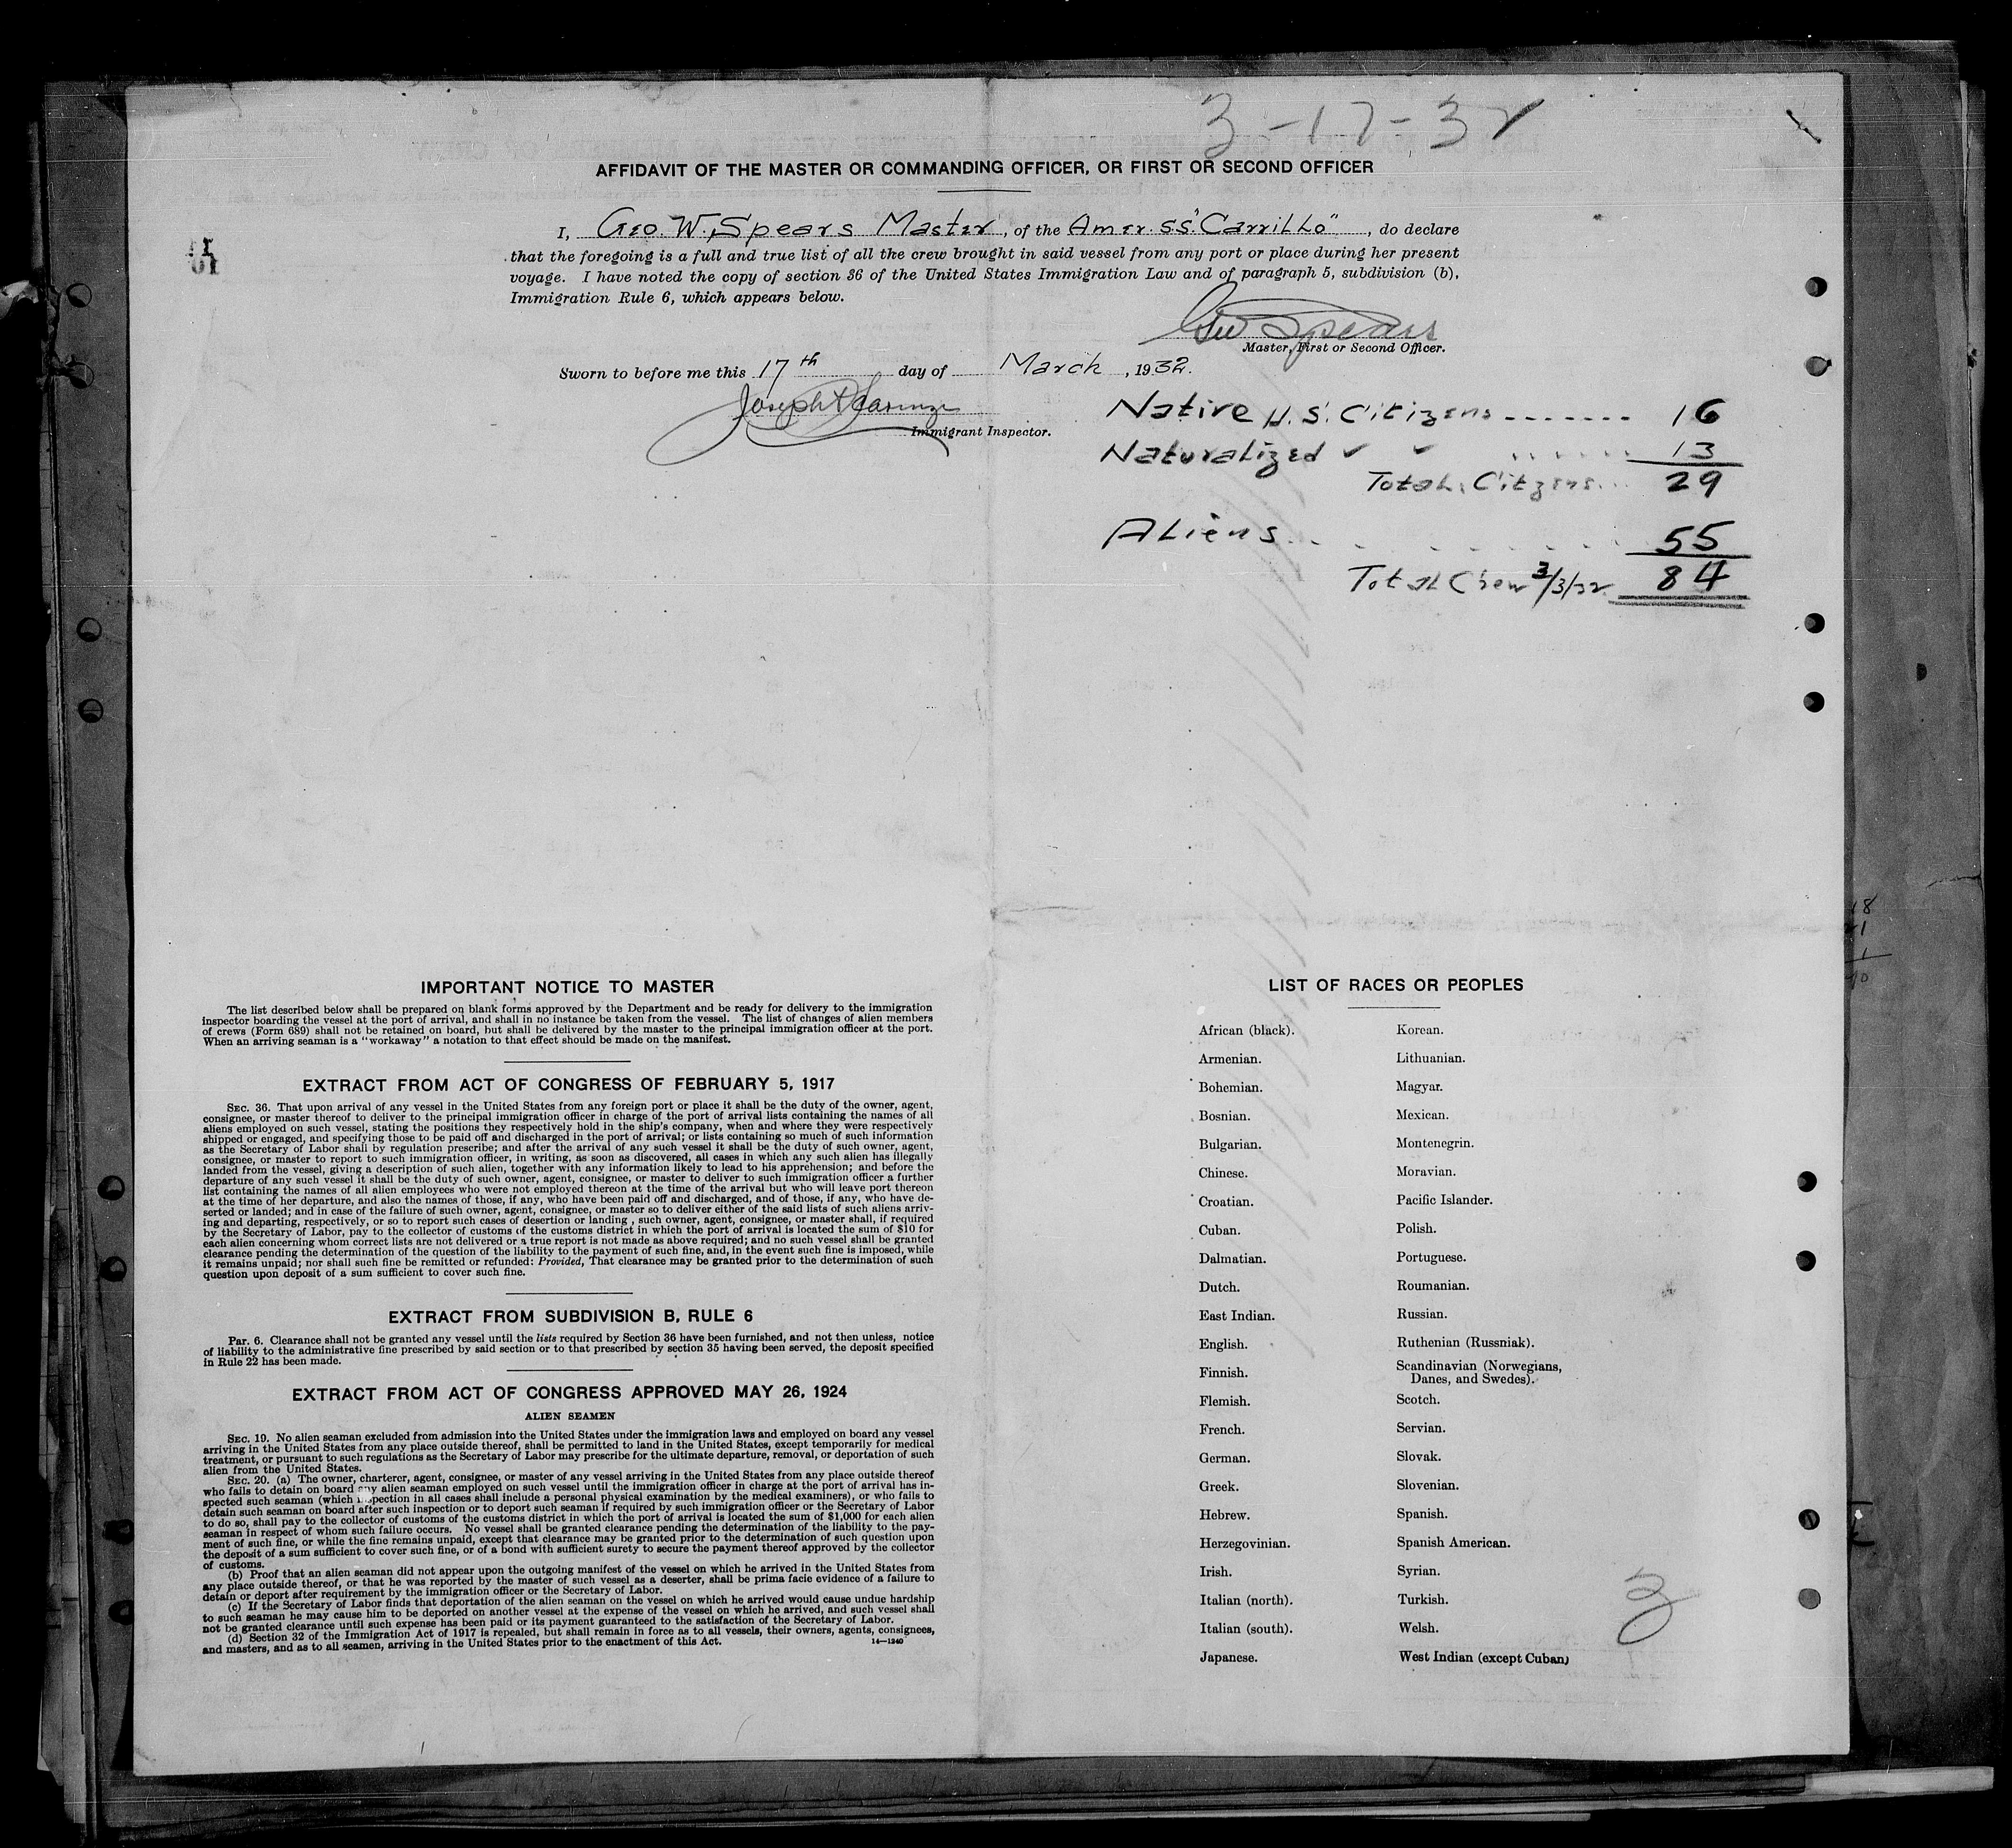 3-17-32
AFFIDAVIT OF THE MASTER OR COMMANDING OFFICER, OR FIRST OR SECOND OFFICER
I, Geo. W. Spears Master, of the Amer. SS. "Carrillo", do declare
that the foregoing is a full and true list of all the crew brought in said vessel from any port or place during her present
voyage. I have noted the copy of section 36 of the United States Immigration Law and of paragraph 5, subdivision (b),
Immigration Rule 6, which appears below.
Geo Spears
Master, First or Second Officer.
Sworn to before me this 17th day of March, 1932.
Joseph
Immigrant Inspector.
Native U.S. Citizens ------- 16
Naturalized " " ...... 13
Total Citzens... 29
Aliens. . . . . . . . 55
Total Crew 3/3/32 84
IMPORTANT NOTICE TO MASTER
The list described below shall be prepared on blank forms approved by the Department and be ready for delivery to the immigration
inspector boarding the vessel at the port of arrival, and shall in no instance be taken from the vessel. The list of changes of alien members
of crews (Form 689) shall not be retained on board, but shall be delivered by the master to the principal immigration officer at the port.
When an arriving seaman is a "workaway" a notation to that effect should be made on the manifest.
EXTRACT FROM ACT OF CONGRESS OF FEBRUARY 5, 1917
SEC. 36. That upon arrival of any vessel in the United States from any foreign port or place it shall be the duty of the owner, agent,
consignee, or master thereof to deliver to the principal immigration officer in charge of the port of arrival lists containing the names of all
aliens employed on such vessel, stating the positions they respectively hold in the ship's company, when and where they were respectively
shipped or engaged, and specifying those to be paid off and discharged in the port of arrival; or lists containing so much of such information
as the Secretary of Labor shall by regulation prescribe; and after the arrival of any such vessel it shall be the duty of such owner, agent,
consignee, or master to report to such immigration officer, in writing, as soon as discovered, all cases in which any such alien has illegally
landed from the vessel, giving a description of such alien, together with any information likely to lead to his apprehension; and before the
departure of any such vessel it shall be the duty of such owner, agent, consignee, or master to deliver to such immigration officer a further
list containing the names of all alien employees who were not employed thereon at the time of the arrival but who will leave port thereon
at the time of her departure, and also the names of those, if any, who have been paid off and discharged, and of those, if any, who have de-
serted or landed; and in case of the failure of such owner, agent, consignee, or master so to deliver either of the said lists of such aliens arriv-
ing and departing, respectively, or so to report such cases of desertion or landing , such owner, agent, consignee, or master shall, if required
by the Secretary of Labor, pay to the collector of customs of the customs district in which the port of arrival is located the sum of $10 for
each alien concerning whom correct lists are not delivered or a true report is not made as above required; and no such vessel shall be granted
clearance pending the determination of the question of the liability to the payment of such fine, and, in the event such fine is imposed, while
it remains unpaid; nor shall such fine be remitted or refunded: Provided, That clearance may be granted prior to the determination of such
question upon deposit of a sum sufficient to cover such fine.
EXTRACT FROM SUBDIVISION B, RULE 6
Par. 6. Clearance shall not be granted any vessel until the lists required by Section 36 have been furnished, and not then unless, notice
of liability to the administrative fine prescribed by said section or to that prescribed by section 35 having been served, the deposit specified
in Rule 22 has been made.
EXTRACT FROM ACT OF CONGRESS APPROVED MAY 26, 1924
ALIEN SEAMEN
SEC. 19. No alien seaman excluded from admission into the United States under the immigration laws and employed on board any vessel
arriving in the United States from any place outside thereof, shall be permitted to land in the United States, except temporarily for medical
treatment, or pursuant to such regulations as the Secretary of Labor may prescribe for the ultimate departure, removal, or deportation of such
alien from the United States.
SEC. 20. (a) The owner, charterer, agent, consignee, or master of any vessel arriving in the United States from any place outside thereof
who fails to detain on board any alien seaman employed on such vessel until the immigration officer in charge at the port of arrival has in-
spected such seaman (which inspection in all cases shall include a personal physical examination by the medical examiners), or who fails to
detain such seaman on board after such inspection or to deport such seaman if required by such immigration officer or the Secretary of Labor
to do so, shall pay to the collector of customs of the customs district in which the port of arrival is located the sum of $1,000 for each alien
seaman in respect of whom such failure occurs. No vessel shall be granted clearance pending the determination of the liability to the pay-
ment of such fine, or while the fine remains unpaid, except that clearance may be granted prior to the determination of such question upon
the deposit of a sum sufficient to cover such fine, or of a bond with sufficient surety to secure the payment thereof approved by the collector
of customs.
(b) Proof that an alien seaman did not appear upon the outgoing manifest of the vessel on which he arrived in the United States from
any place outside thereof, or that he was reported by the master of such vessel as a deserter, shall be prima facie evidence of a failure to
detain or deport after requirement by the immigration officer or the Secretary of Labor.
(c) If the Secretary of Labor finds that deportation of the alien seaman on the vessel on which he arrived would cause undue hardship
to such seaman he may cause him to be deported on another vessel at the expense of the vessel on which he arrived, and such vessel shall
not be granted clearance until such expense has been paid or its payment guaranteed to the satisfaction of the Secretary of Labor.
(d) Section 32 of the Immigration Act of 1917 is repealed, but shall remain in force as to all vessels, their owners, agents, consignees,
and masters, and as to all seamen, arriving in the United States prior to the enactment of this Act. 14—1240
LIST OF RACES OR PEOPLES
African (black).
Armenian.
Bohemian.
Bosnian.
Bulgarian.
Chinese.
Croatian.
Cuban.
Dalmatian.
Dutch.
East Indian.
English.
Finnish.
Flemish.
French.
German.
Greek.
Hebrew.
Herzegovinian.
Irish.
Italian (north).
Italian (south).
Japanese.
Korean.
Lithuanian.
Magyar.
Mexican.
Montenegrin.
Moravian.
Pacific Islander.
Polish.
Portuguese.
Roumanian.
Russian.
Ruthenian (Russniak).
Scandinavian (Norwegians,
Danes, and Swedes).
Scotch.
Servian.
Slovak.
Slovenian.
Spanish.
Spanish American.
Syrian.
Turkish.
Welsh.
West Indian (except Cuban)